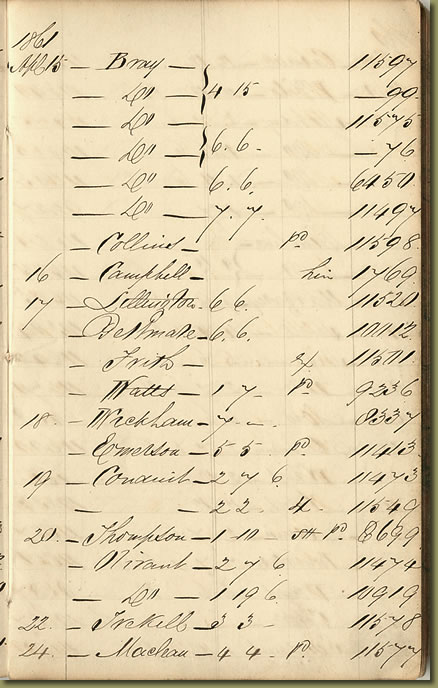 1861
Apl 15 — Bray — 11597
— Do — 4 15 — 99
— Do — 11575
— Do — 6. 6. — 76
— Do — 6. 6. 6450
— Do — 7. 7. 11497
— Collins — pd 11598
16 — Campbell — 1760
17 — 6 6. 11520
— 6. 6.
— Frith —
— Watts — 1 7 — pd 9236
18 — Wickham — 7 — 8337
— Emerson — 5 5 pd 11413
19 — Conduit — 2 7 6 11473
— — 2 2 11549
20 — Thompson — 1 10 — pd 8699
— 2 7 6 11474
— Do — 1 19 6 10919
22. — 3 3 — 11578
24. — Maclean — 4 4 pd. 11577